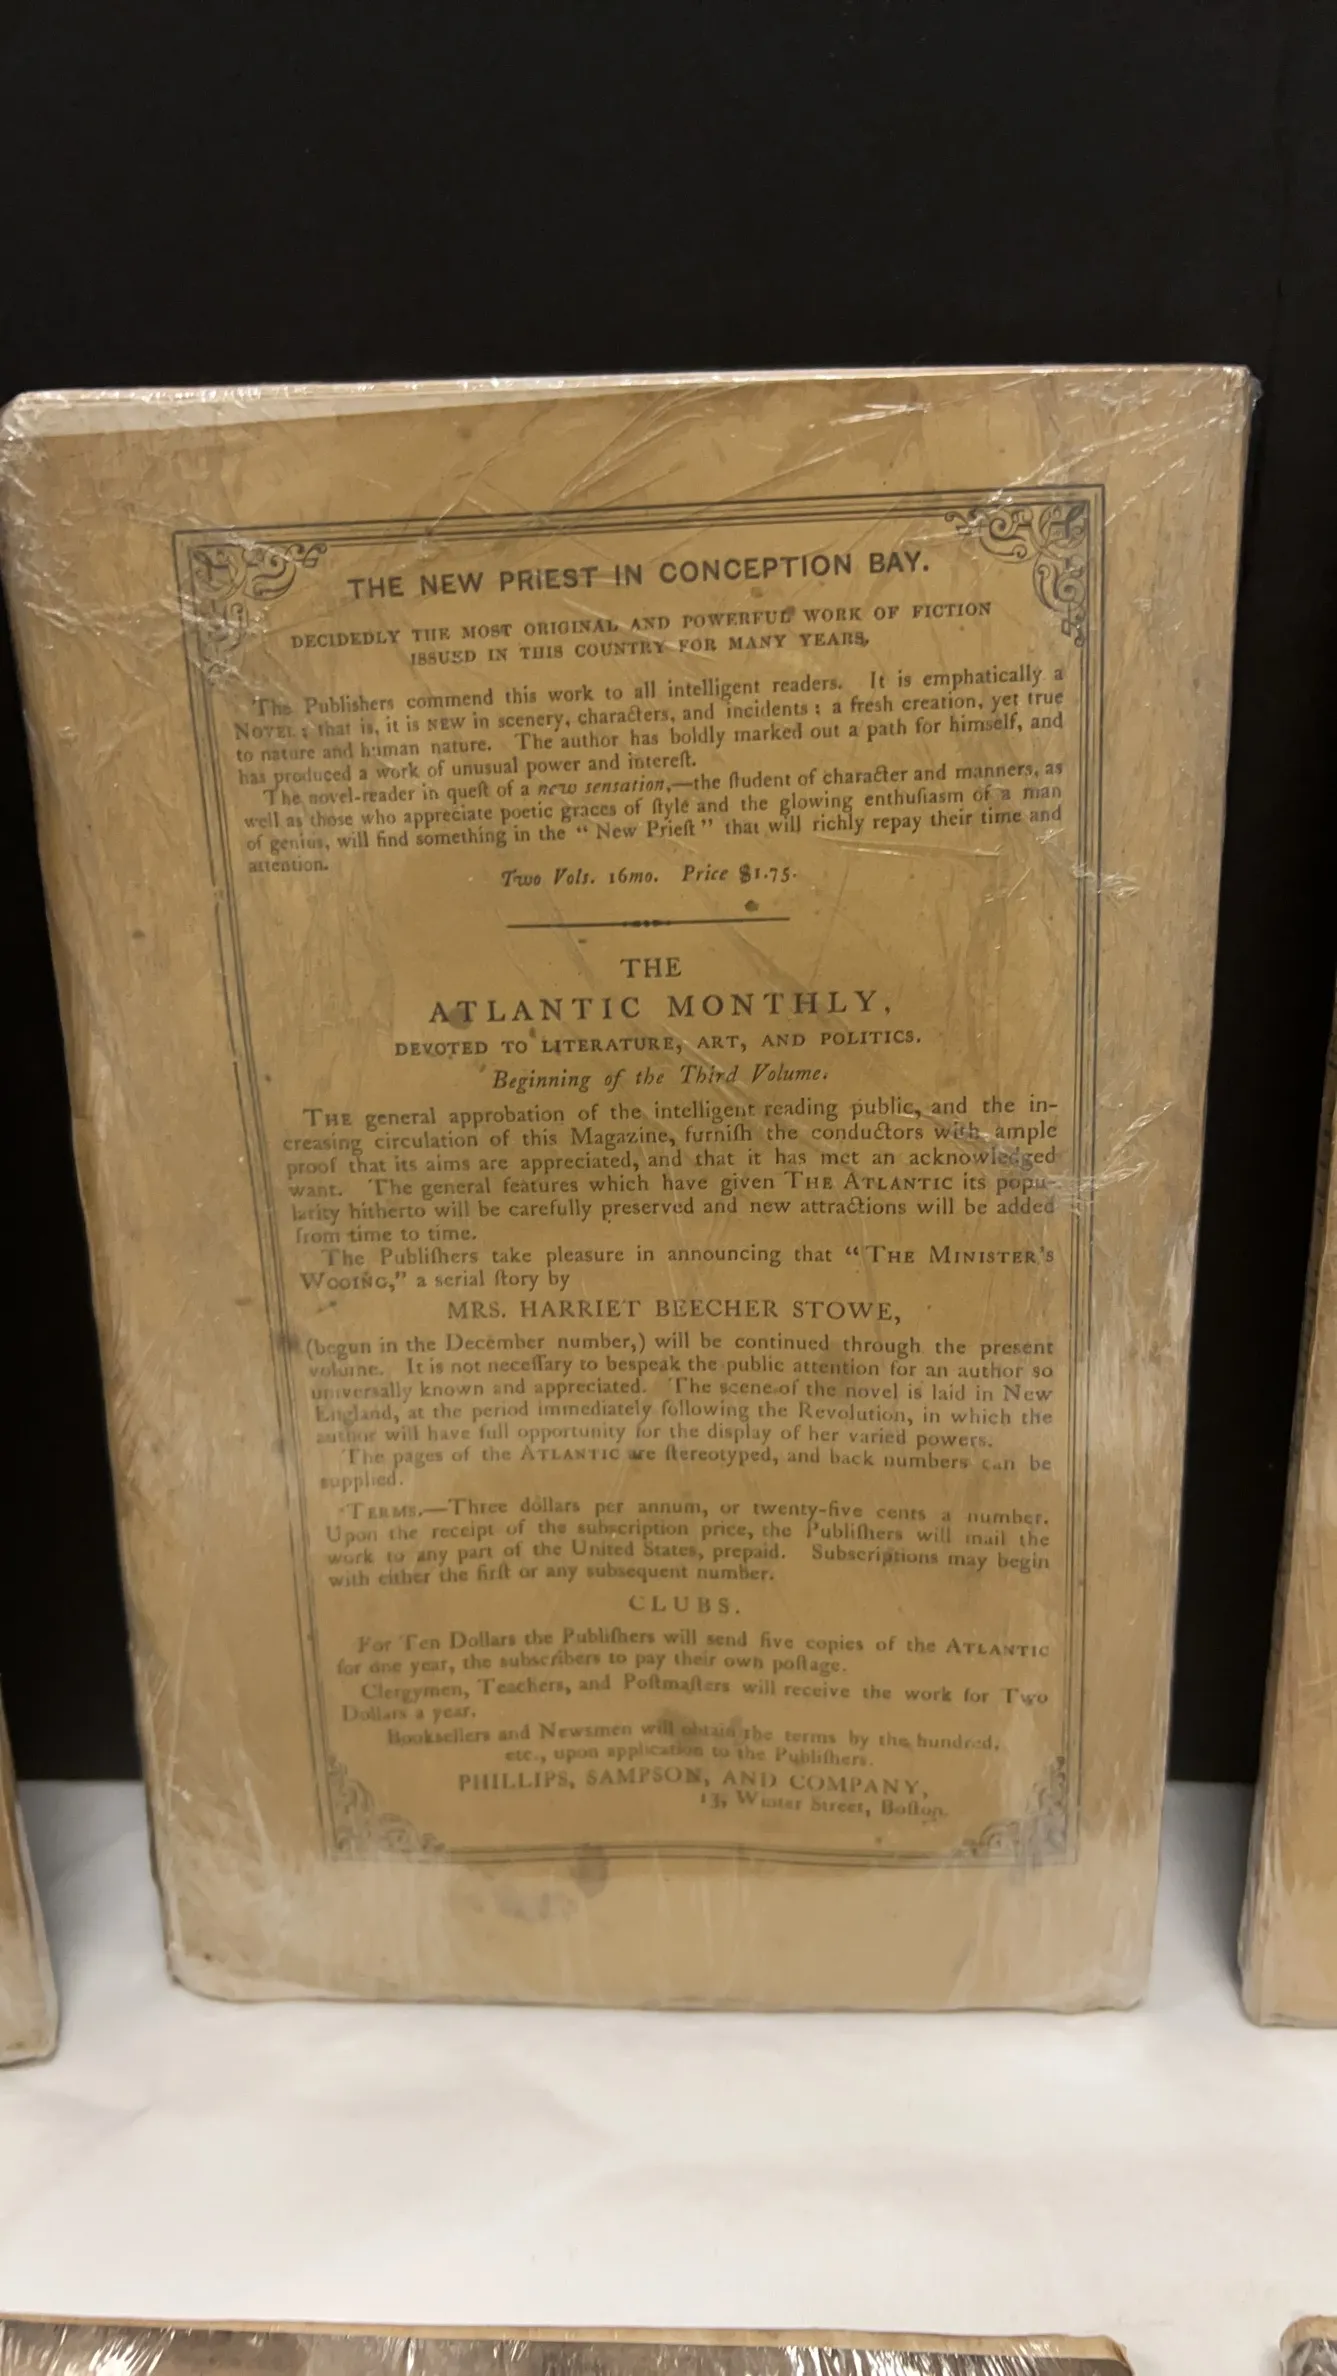 THE NEW PRIEST IN CONCEPTION BAY.
DECIDEDLY THE MOST ORIGINAL AND POWERFUL WORK OF FICTION
ISSUED IN THIS COUNTRY FOR MANY YEARS,
The Publishers commend this work to all intelligent readers. It is emphatically a
NOVEL; that is, it is NEW in scenery, characters, and incidents: a fresh creation, yet true
to nature and human nature. The author has boldly marked out a path for himself, and
has produced a work of unusual power and intereſt.
The novel-reader in queſt of a new sensation,—the ſtudent of character and manners, as
well as those who appreciate poetic graces of ſtyle and the glowing enthuſiasm of a man
of genius, will find something in the “New Prieſt” that will richly repay their time and
attention.
Two Vols. 16mo. Price $1.75.
THE
ATLANTIC MONTHLY,
DEVOTED TO LITERATURE, ART, AND POLITICS.
Beginning of the Third Volume.
THE general approbation of the intelligent reading public, and the in-
creasing circulation of this Magazine, furniſh the conductors with ample
proof that its aims are appreciated, and that it has met an acknowledged
want. The general features which have given THE ATLANTIC its popu-
larity hitherto will be carefully preserved and new attractions will be added
from time to time.
The Publiſhers take pleasure in announcing that “THE MINISTER’S
WOOING,” a serial ſtory by
MRS. HARRIET BEECHER STOWE,
(begun in the December number,) will be continued through the present
volume. It is not neceſſary to bespeak the public attention for an author so
universally known and appreciated. The scene of the novel is laid in New
England, at the period immediately following the Revolution, in which the
author will have full opportunity for the display of her varied powers.
The pages of the ATLANTIC are ſtereotyped, and back numbers can be
supplied.
TERMS.—Three dollars per annum, or twenty-five cents a number.
Upon the receipt of the subscription price, the Publiſhers will mail the
work to any part of the United States, prepaid. Subscriptions may begin
with either the firſt or any subsequent number.
CLUBS.
For Ten Dollars the Publiſhers will send five copies of the ATLANTIC
for one year, the subscribers to pay their own poſtage.
Clergymen, Teachers, and Poſtmaſters will receive the work for Two
Dollars a year.
Booksellers and Newsmen will obtain the terms by the hundred,
etc., upon application to the Publiſhers.
PHILLIPS, SAMPSON, AND COMPANY,
13, Winter Street, Boſton.